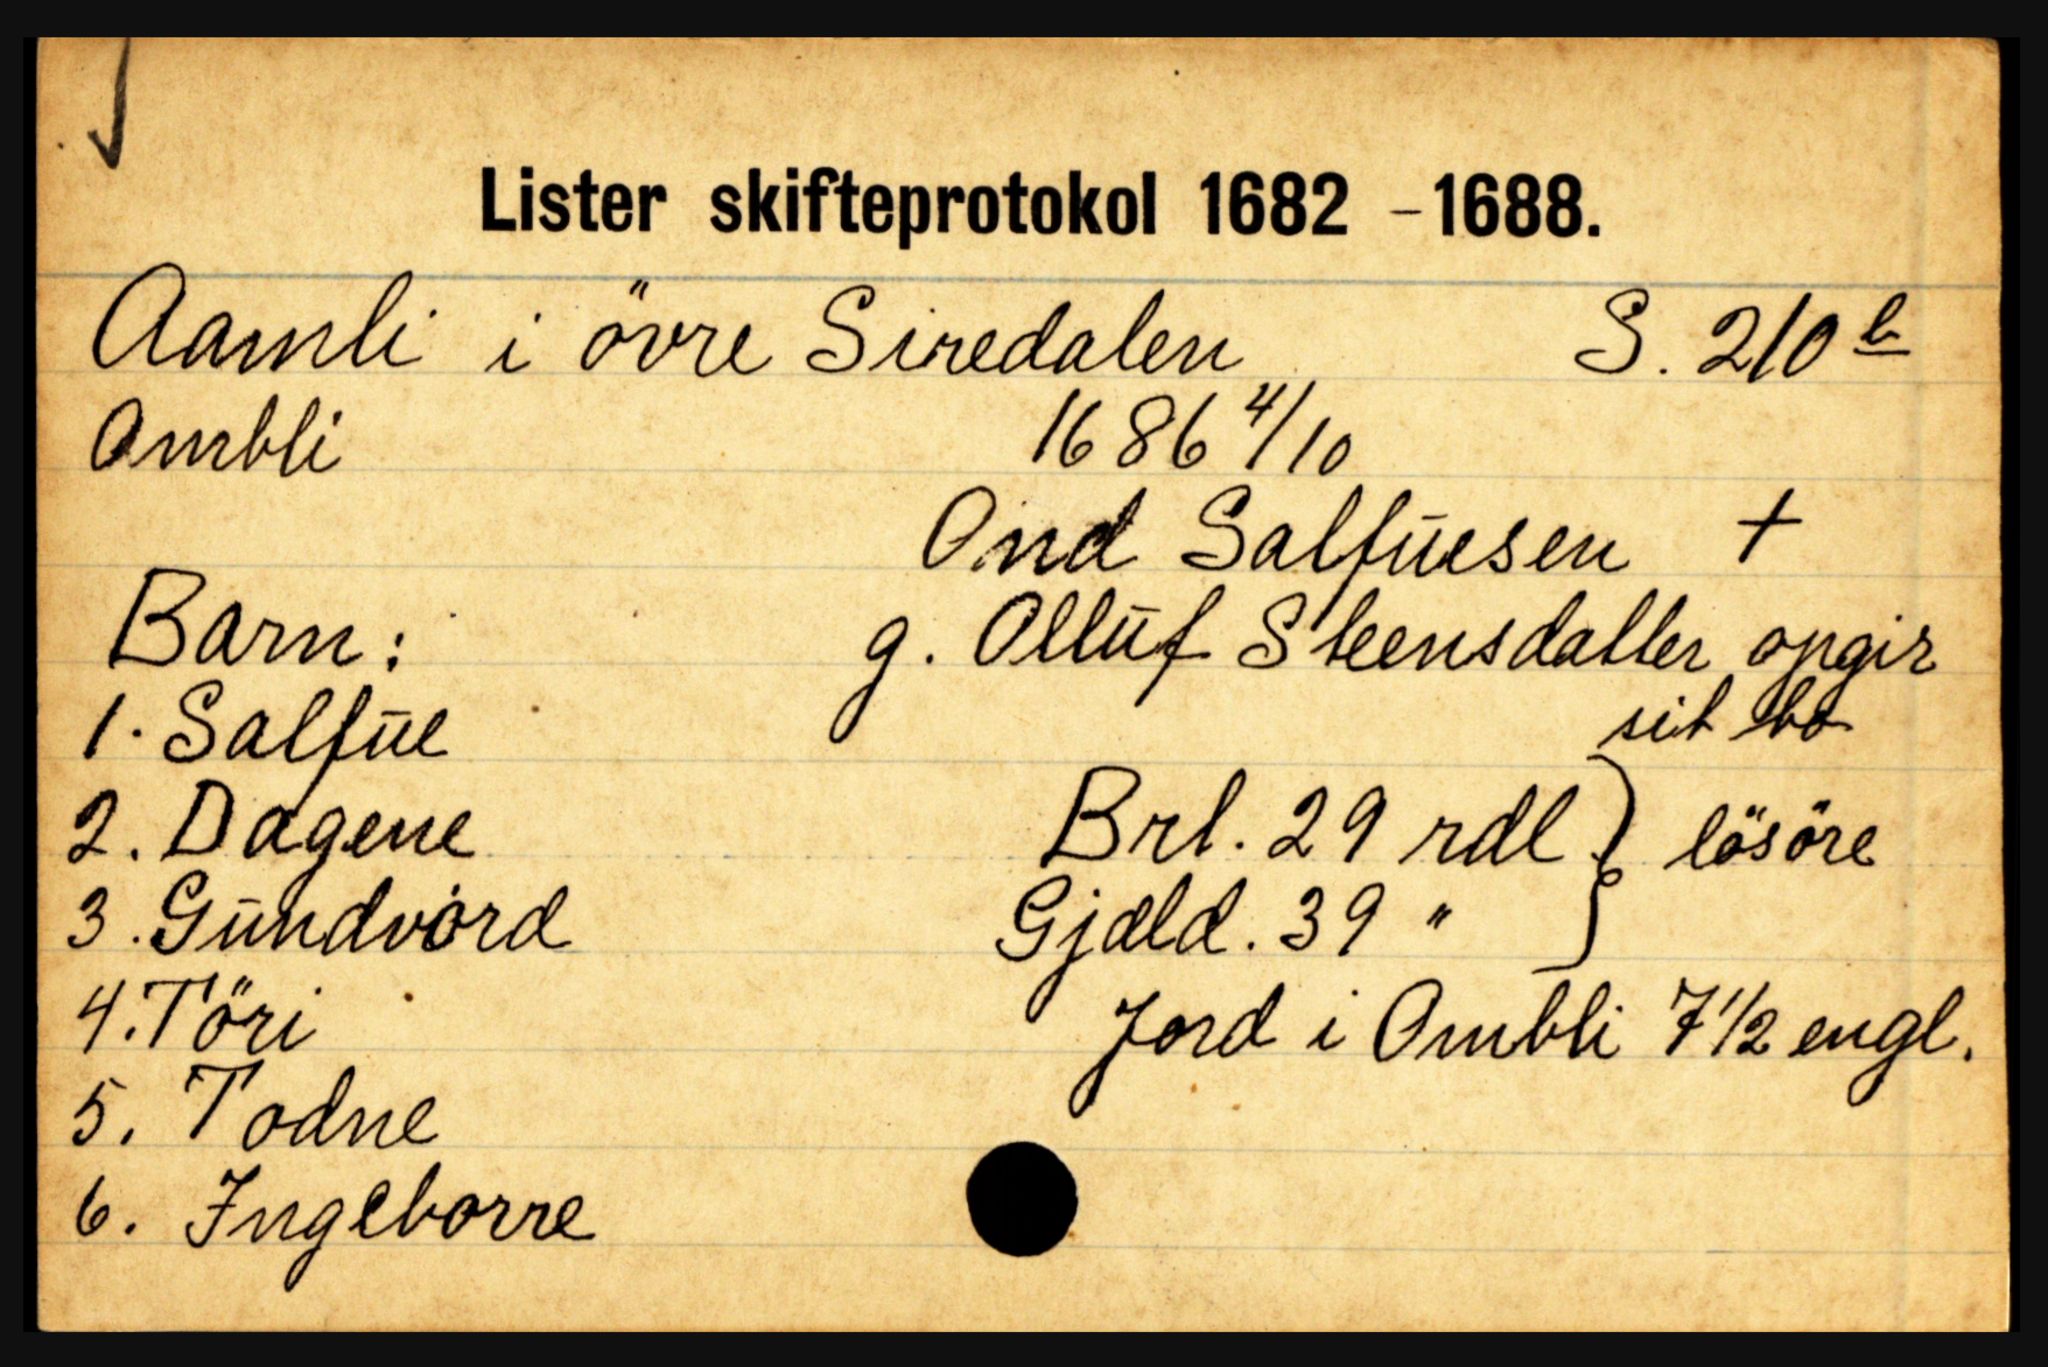 Lister skifteprotokol 1682 - 1688.
Aamli i övre Siredalen S. 210 b
Ombli 1686 4/10
Ond Salfūesen +
Barn: g. Ollūf Steensdatter opgir
sit bo
1. Salfūe
2. Dagene Brl. 29 rdl } lösöre
3. Gūndvörd Gjæld. 39 "
4. Töri Jord i Ombli 7 1/2 engl.
5. Todne
6. Ingeborre